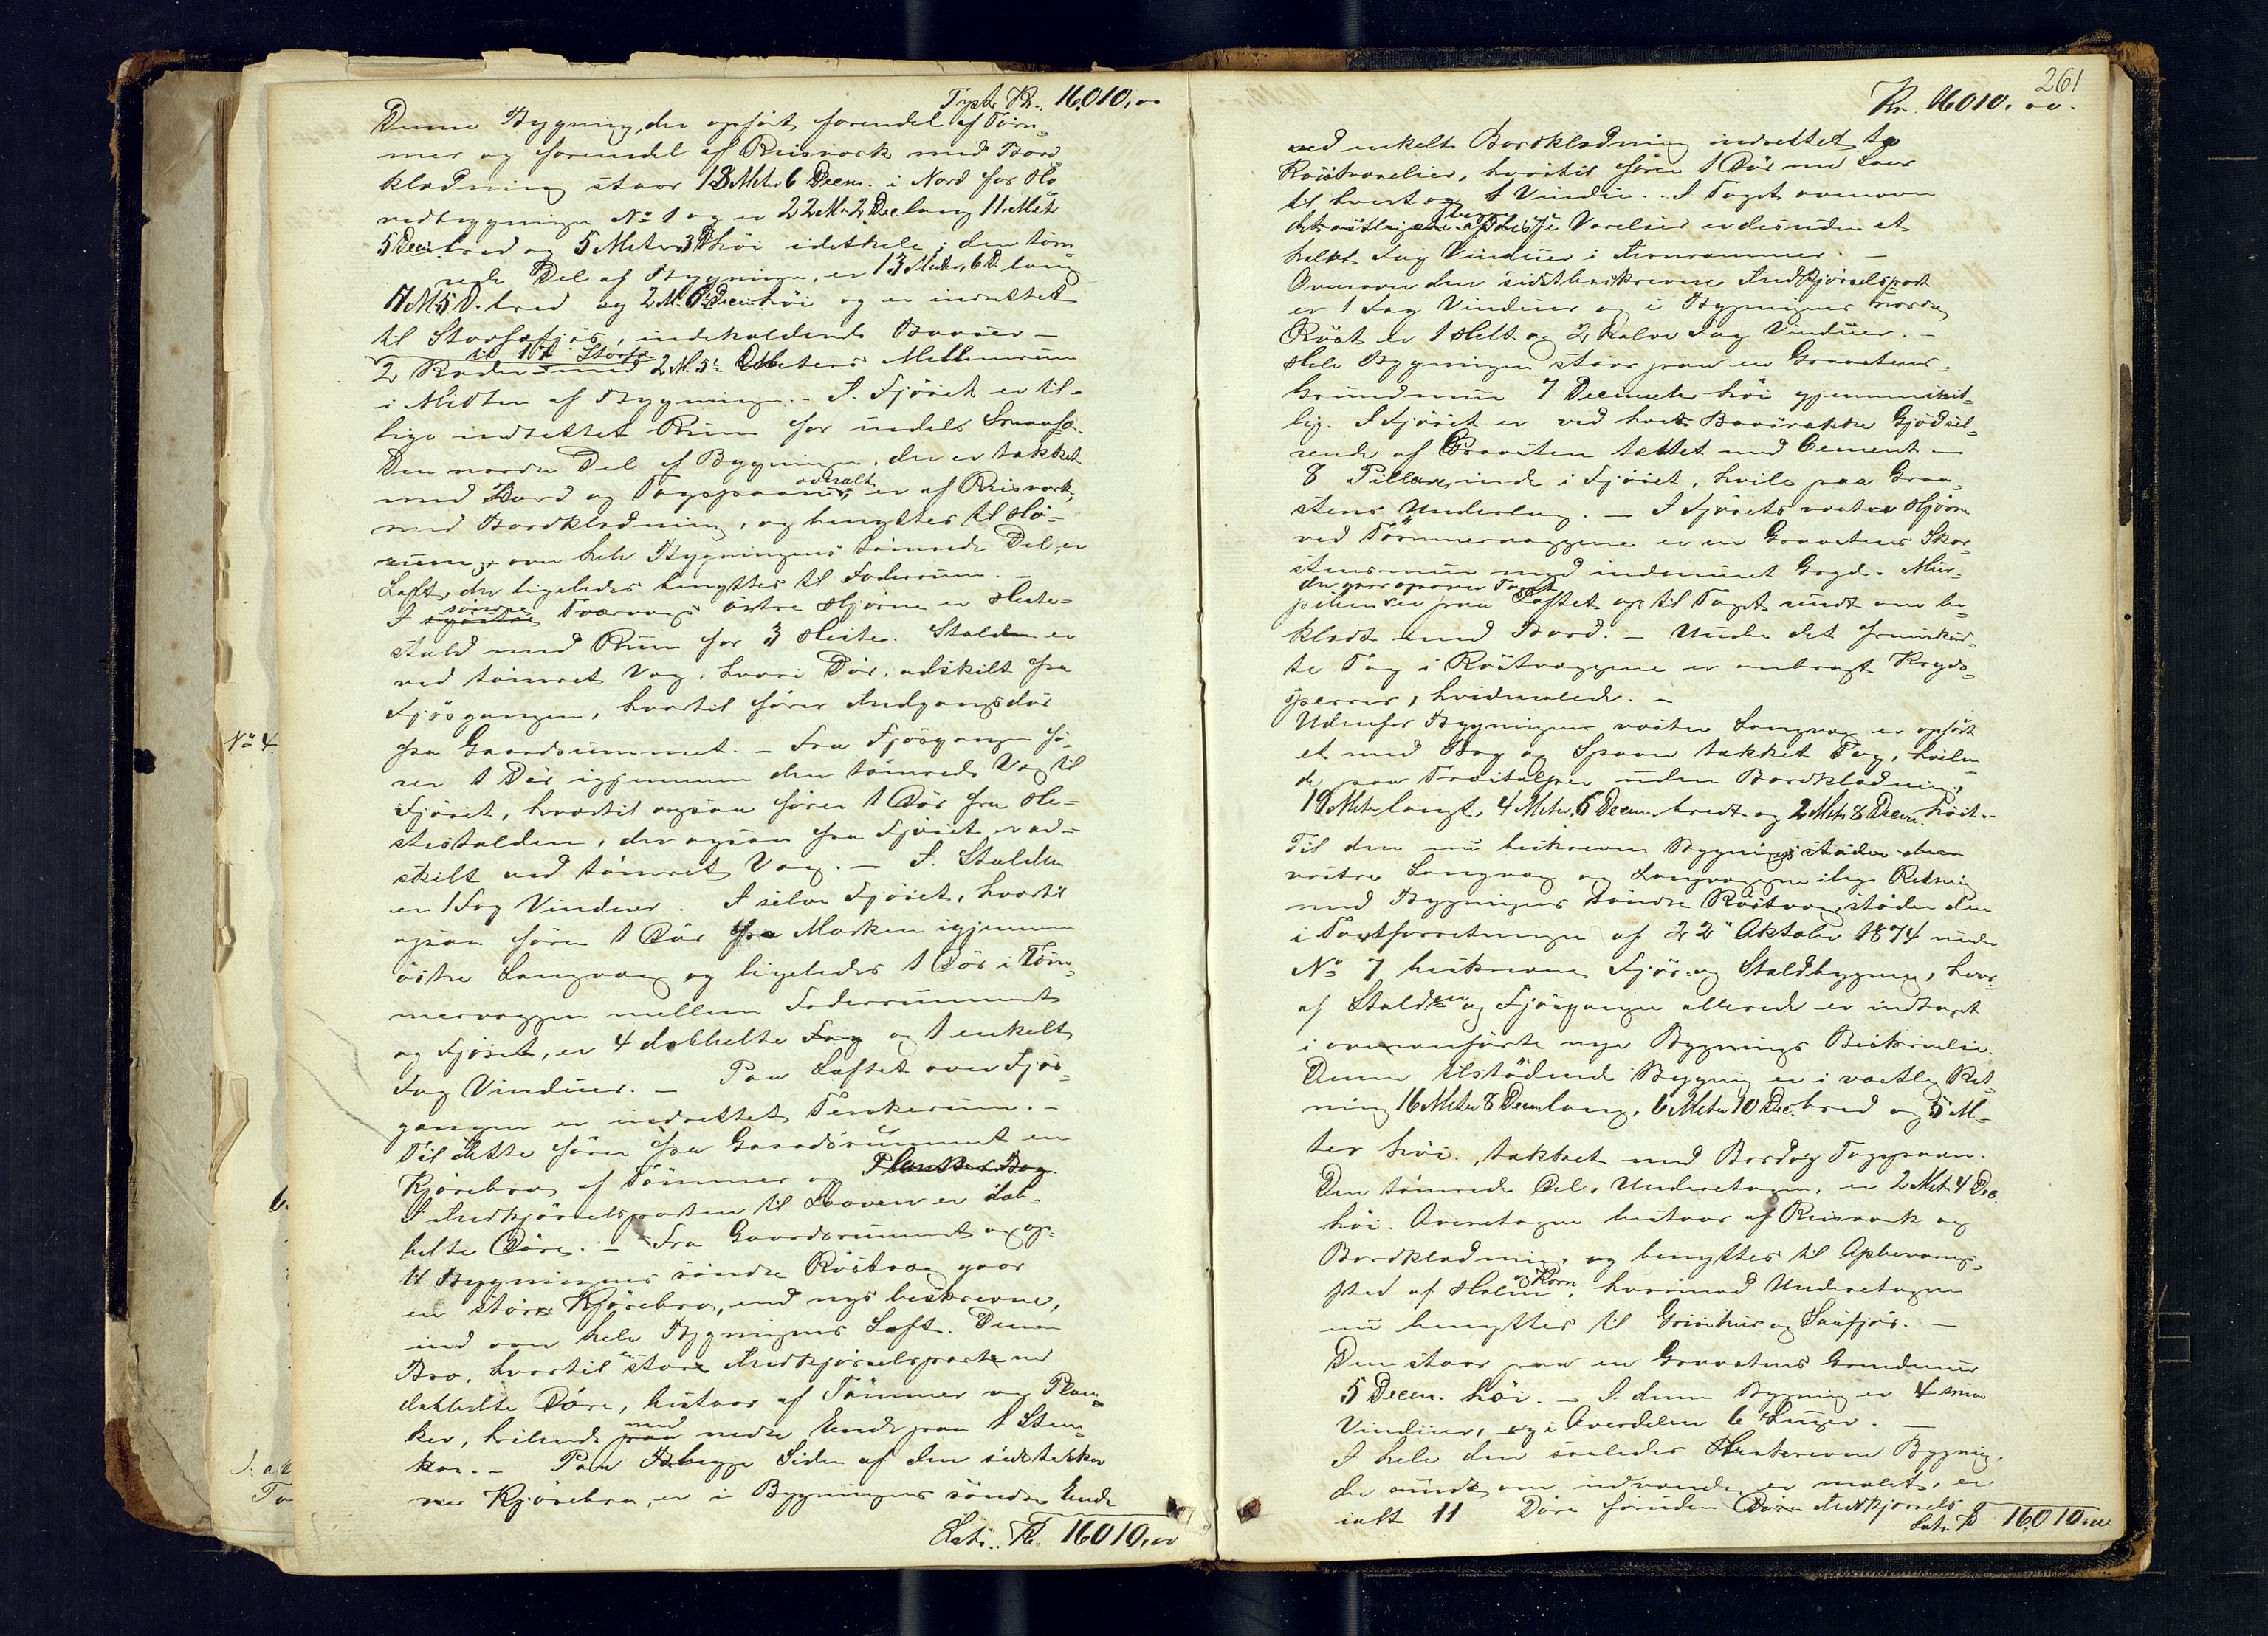 Trpt. Kr. 16010,00
Denne Bygning, der opført forendel af Töm-
mer og forendel af Reisverk med Bord
klædning staar 18 Meter 6 Decm. i Nord for Ho
vedbygningen No 1 og er 22 M. 2 Dec. lang 11 Met
5 Decim. bred og 5 Meter 3 D høi idethele; den töm
rede Del af Bygningen, er 13 Meter, 6 D. lang
11 M. 5 D. bred og 2 M. 6 Decim høi og er indrettet
til Storfæfjös, indeholdende Baaser
til 17 Storfæ
2 Rader med 2 M. 5 Meters Mellemrum
i Midten af Bygningen. - I Fjöset er til-
lige indrettet Rum for indels Smaafæ.
Den nordre Del af Bygningen, der er tækket
med Bord og Tagspaan overalt, er af Reisverk
med Bordklædning, og benyttes til Hö-
rum; over hele Bygningens tömrede Del er
Loft, der ligeledes benyttes til Foderrum. -
I søndre Tværvægs östre Hjörne er Heste-
stald med Rum for 3 Heste. Stalden er
ved tömret Væg, hvori Dör, adskilt fra
Fjösgangen, hvortil förer Indgangsdör
fra Gaardsrummet. - Fra Fjösgangen fö-
rer 1 Dör igjennem den tömrede Væg til
Fjöset, hvortil ogsaa förer 1 Dör fra He-
stestalden, der ogsaa fra Fjöset er ad-
skilt ved tömret Væg. - I Stalden
er 1 Fag Vinduer. I selve Fjöset, hvortil
ogsaa förer 1 Dör fra Marken igjennem
östre Langvæg og ligeledes 1 Dör i Töm-
mervæggen mellem Foderrummet
og Fjöset, er 4 dobbelte Fag og 1 enkelt
Fag Vinduer. - Paa Loftet over Fjös-
gangen er indrettet Terskerum. -
Til dette förer fra Gaardsrummet en
Kjörebro af Tömmer og Planker
I Indkjörselsporten til Laaven er dob-
belte Döre. - Fra Gaardsrummet og op
til Bygningens söndre Röstvæg gaar
en större Kjörebro, end nys beskrevne,
ind over hele Bygningens Loft. Denne
Bro, hvortil store Indkjörselsporte med
dobbelte Döre, bestaar af Tömmer og Plan-
ker, hvilende med nedre Ende paa 1 Sten
kar. - Paa begge Sider af den sidstbeskre
vne Kjörebro, er i Bygningens söndre Ende
Lats. Kr. 16010,00
No 4.
261
Kr. 16010,00.
ved enkelt Bordklædning indrettet to
Röstværelser, hvortil förer 1 Dör med Laas
til hvert og 1 Vindu. I Taget ovenover
begge Værelser er desuden et
halvt Fag Vinduer i Jernrammer. -
Ovenover den sidstbeskrevne Indkjörselsport
er 1 Fag Vinduer og i Bygningens nordre
Röst er 1 Helt og 2 halve Fag Vinduer. -
Hele Bygningen staar paa en Graastens-
Grundmur 7 Decimeter höi gjennemsnit-
lig. I Fjöset er ved hver Baasrække Gjödsel-
rende af Graasten tættet med Cement -
8 Pillare, inde i Fjöset, hvile paa Graa-
stens Underlag. - I Fjösets vestre Hjörne
ved Tömmervæggene er en Graastens Skor-
stensmur med indmuret Gryde. Mur-
der gaar op over Taget
piben er paa Loftet op til Taget rundt om be-
klædt med Bord. - Under det fremskud-
te Tag i Röstvæggene er anbragt Kryds-
sperrer, hvidmalede. -
Udenfor Bygningens vestre Langvæg er opfört
et med Bord og Spaan tækket Tag, hvilen-
de paa Træstolper uden Bordklædning,
19 Meter langt, 4 Meter, 6 Decim. bredt og 2 Met. 8 Decim. höit. -
Til den nu beskrevne Bygnings
vestre Langvæg og Langvæggene i lige Retning
med Bygningens söndre Röstvæg, stöder den
i Taxtforretningen af 22 Oktober 1874 under
No 7 beskrevne Fjös- og Staldbygning, hvor-
af Stalden og Fjösgangen allerede er indtaget
i ovenanförte nye Bygnings Beskrivelse.
Denne tilstödende Bygning er i vestlig Ret-
ning 16 Meter 8 Decim. lang, 6 Meter 10 Dec. bred og 5 Me-
ter höi, tækket med Bord og Tagspaan.
Den tömrede Del, Underetagen, er 2 Met. 4 Dec.
höi. Överetagen bestaar af Reisverk og
Bordklædning, og benyttes til Opbevarings-
sted af Halm og Korn, hvorimod Underetagen
nu benyttes til Grisehus og Saufjös. -
Den staar paa en Graastens Grundmur
5 Decim. höi. - I denne Bygning er 4 smaa
Vinduer, og i Överdelen 6 Luger. -
I hele den saaledes beskrevne Bygning,
der rundt om udvendig er malet, er
ialt 11 Döre foruden Indkjörsels
Lats. Kr 16010,00